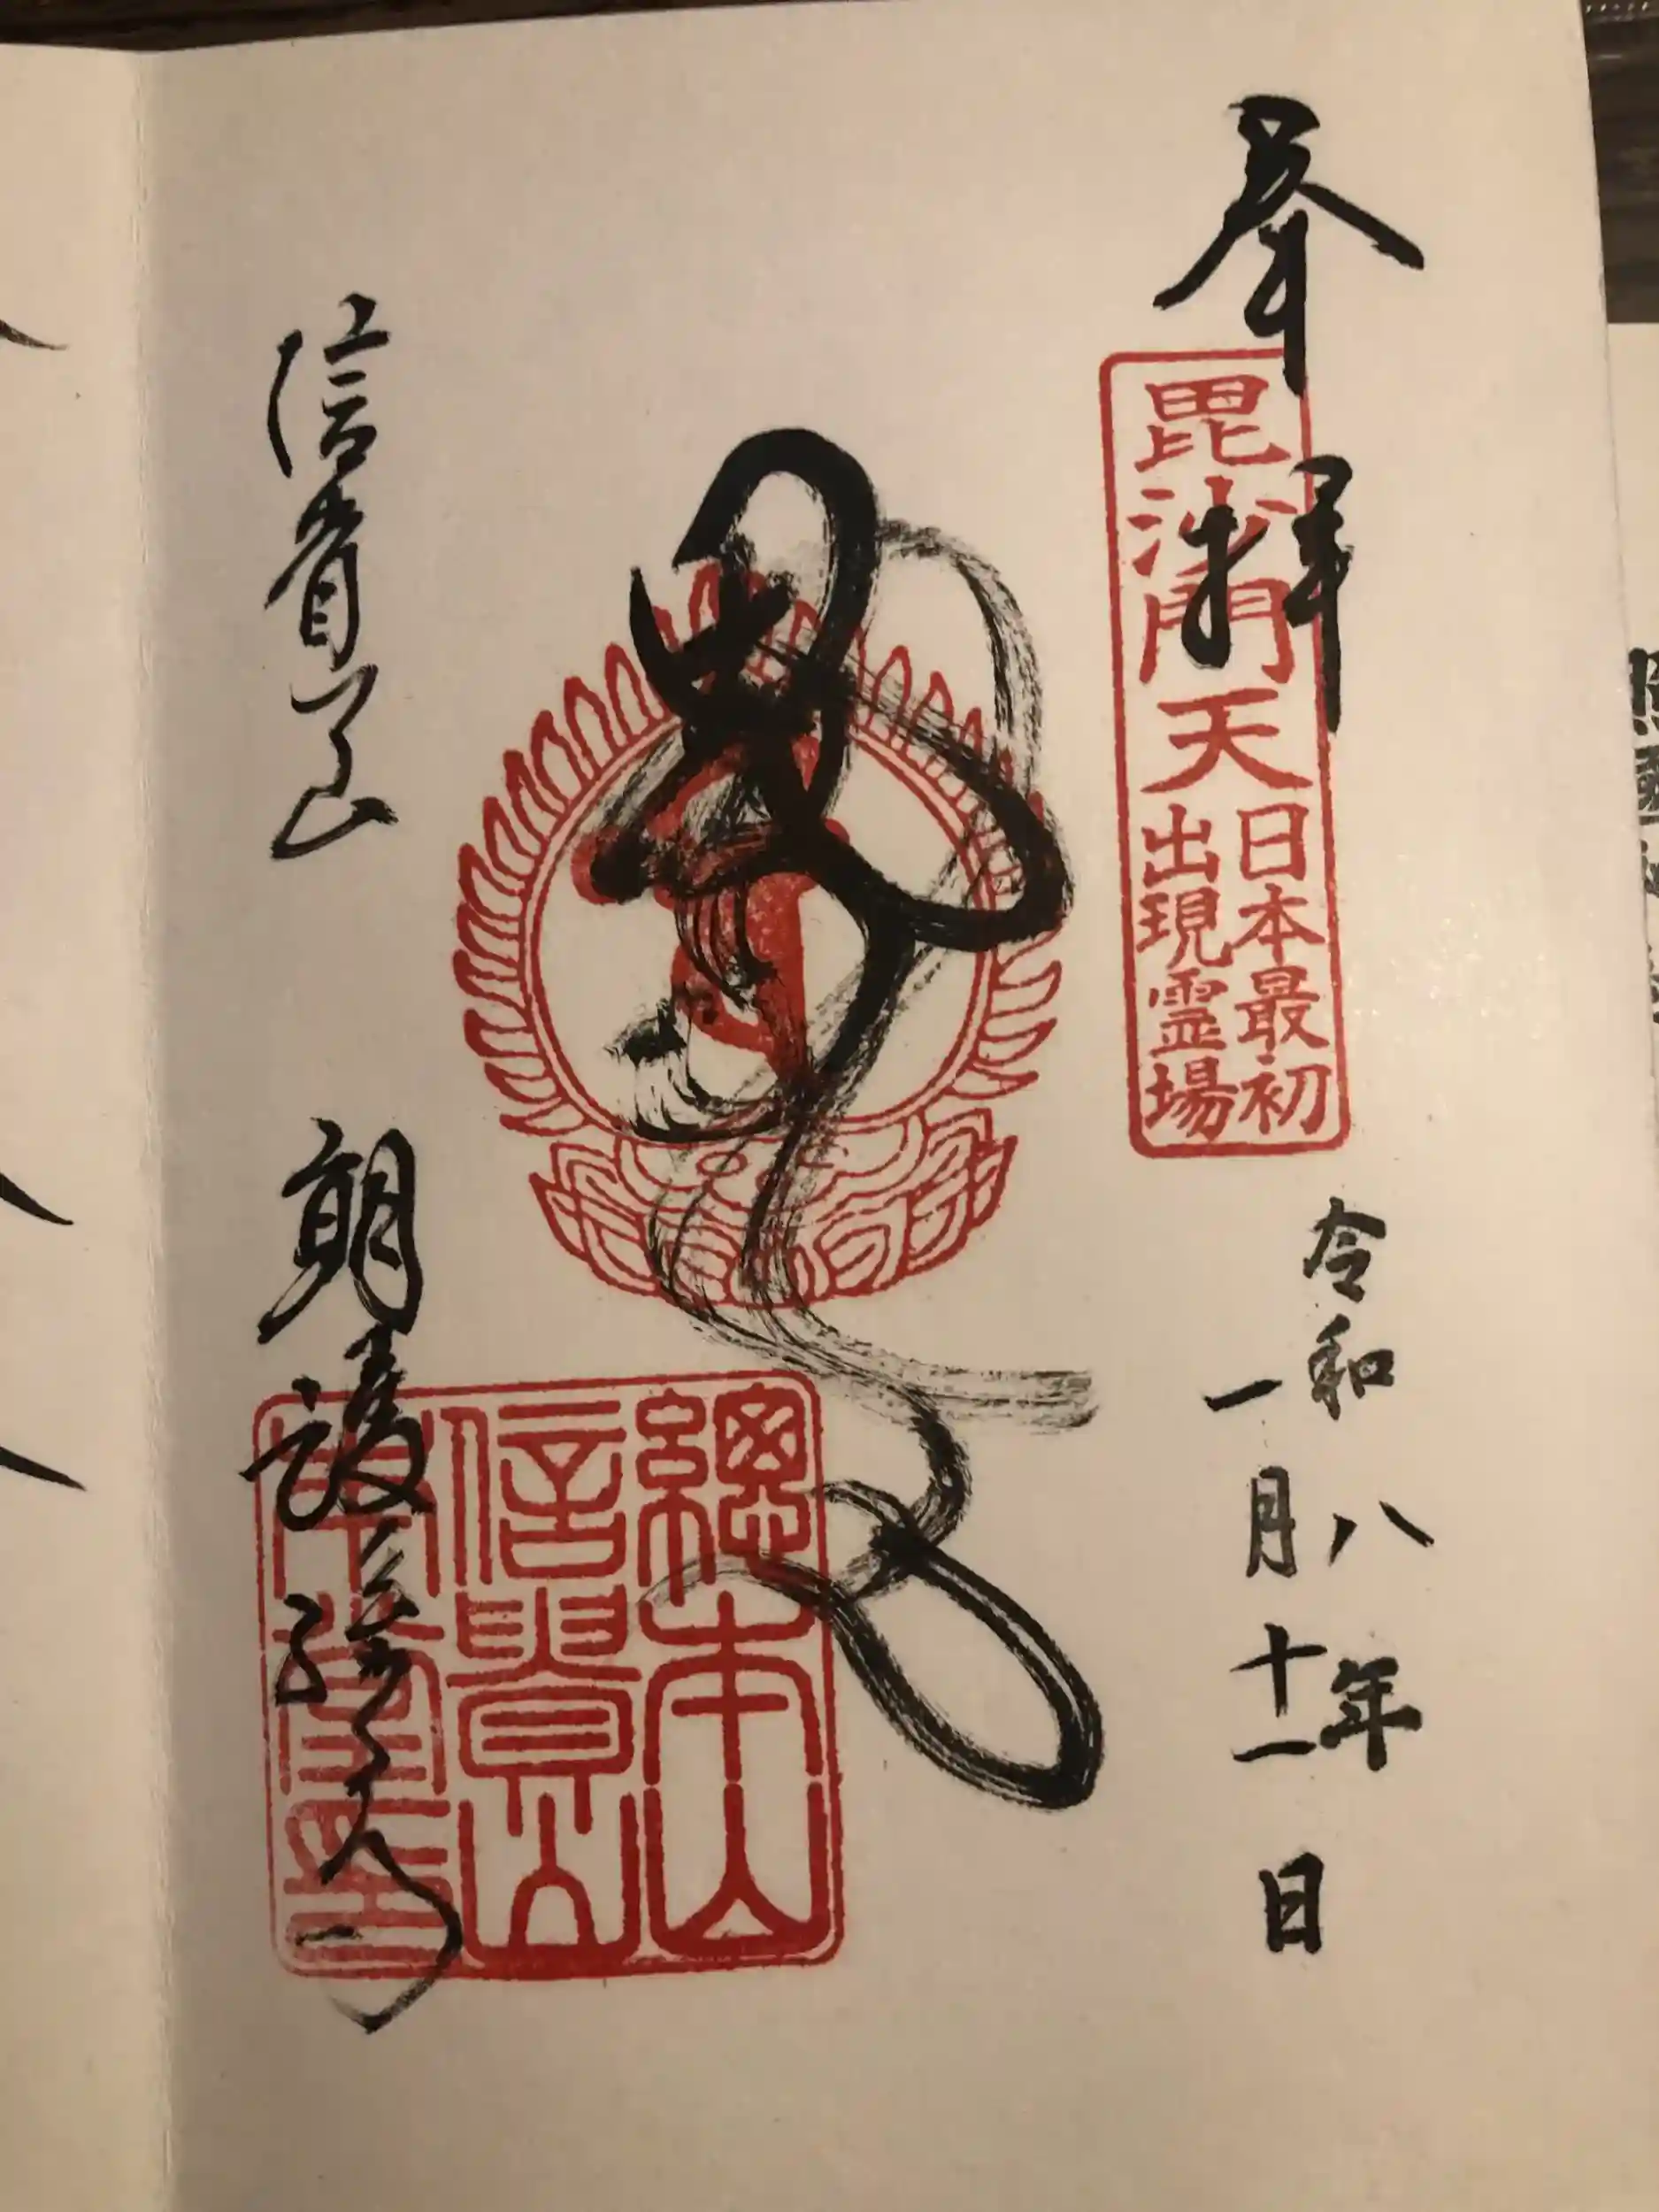 奉拝
毘沙門天
日本最初
出現霊場
令和八年
一月十一日
總本山
信貴山
本堂印
信貴山
朝護孫子寺